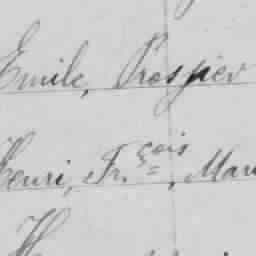 Emile, Prosper
Henri, Fr.çois, Mar